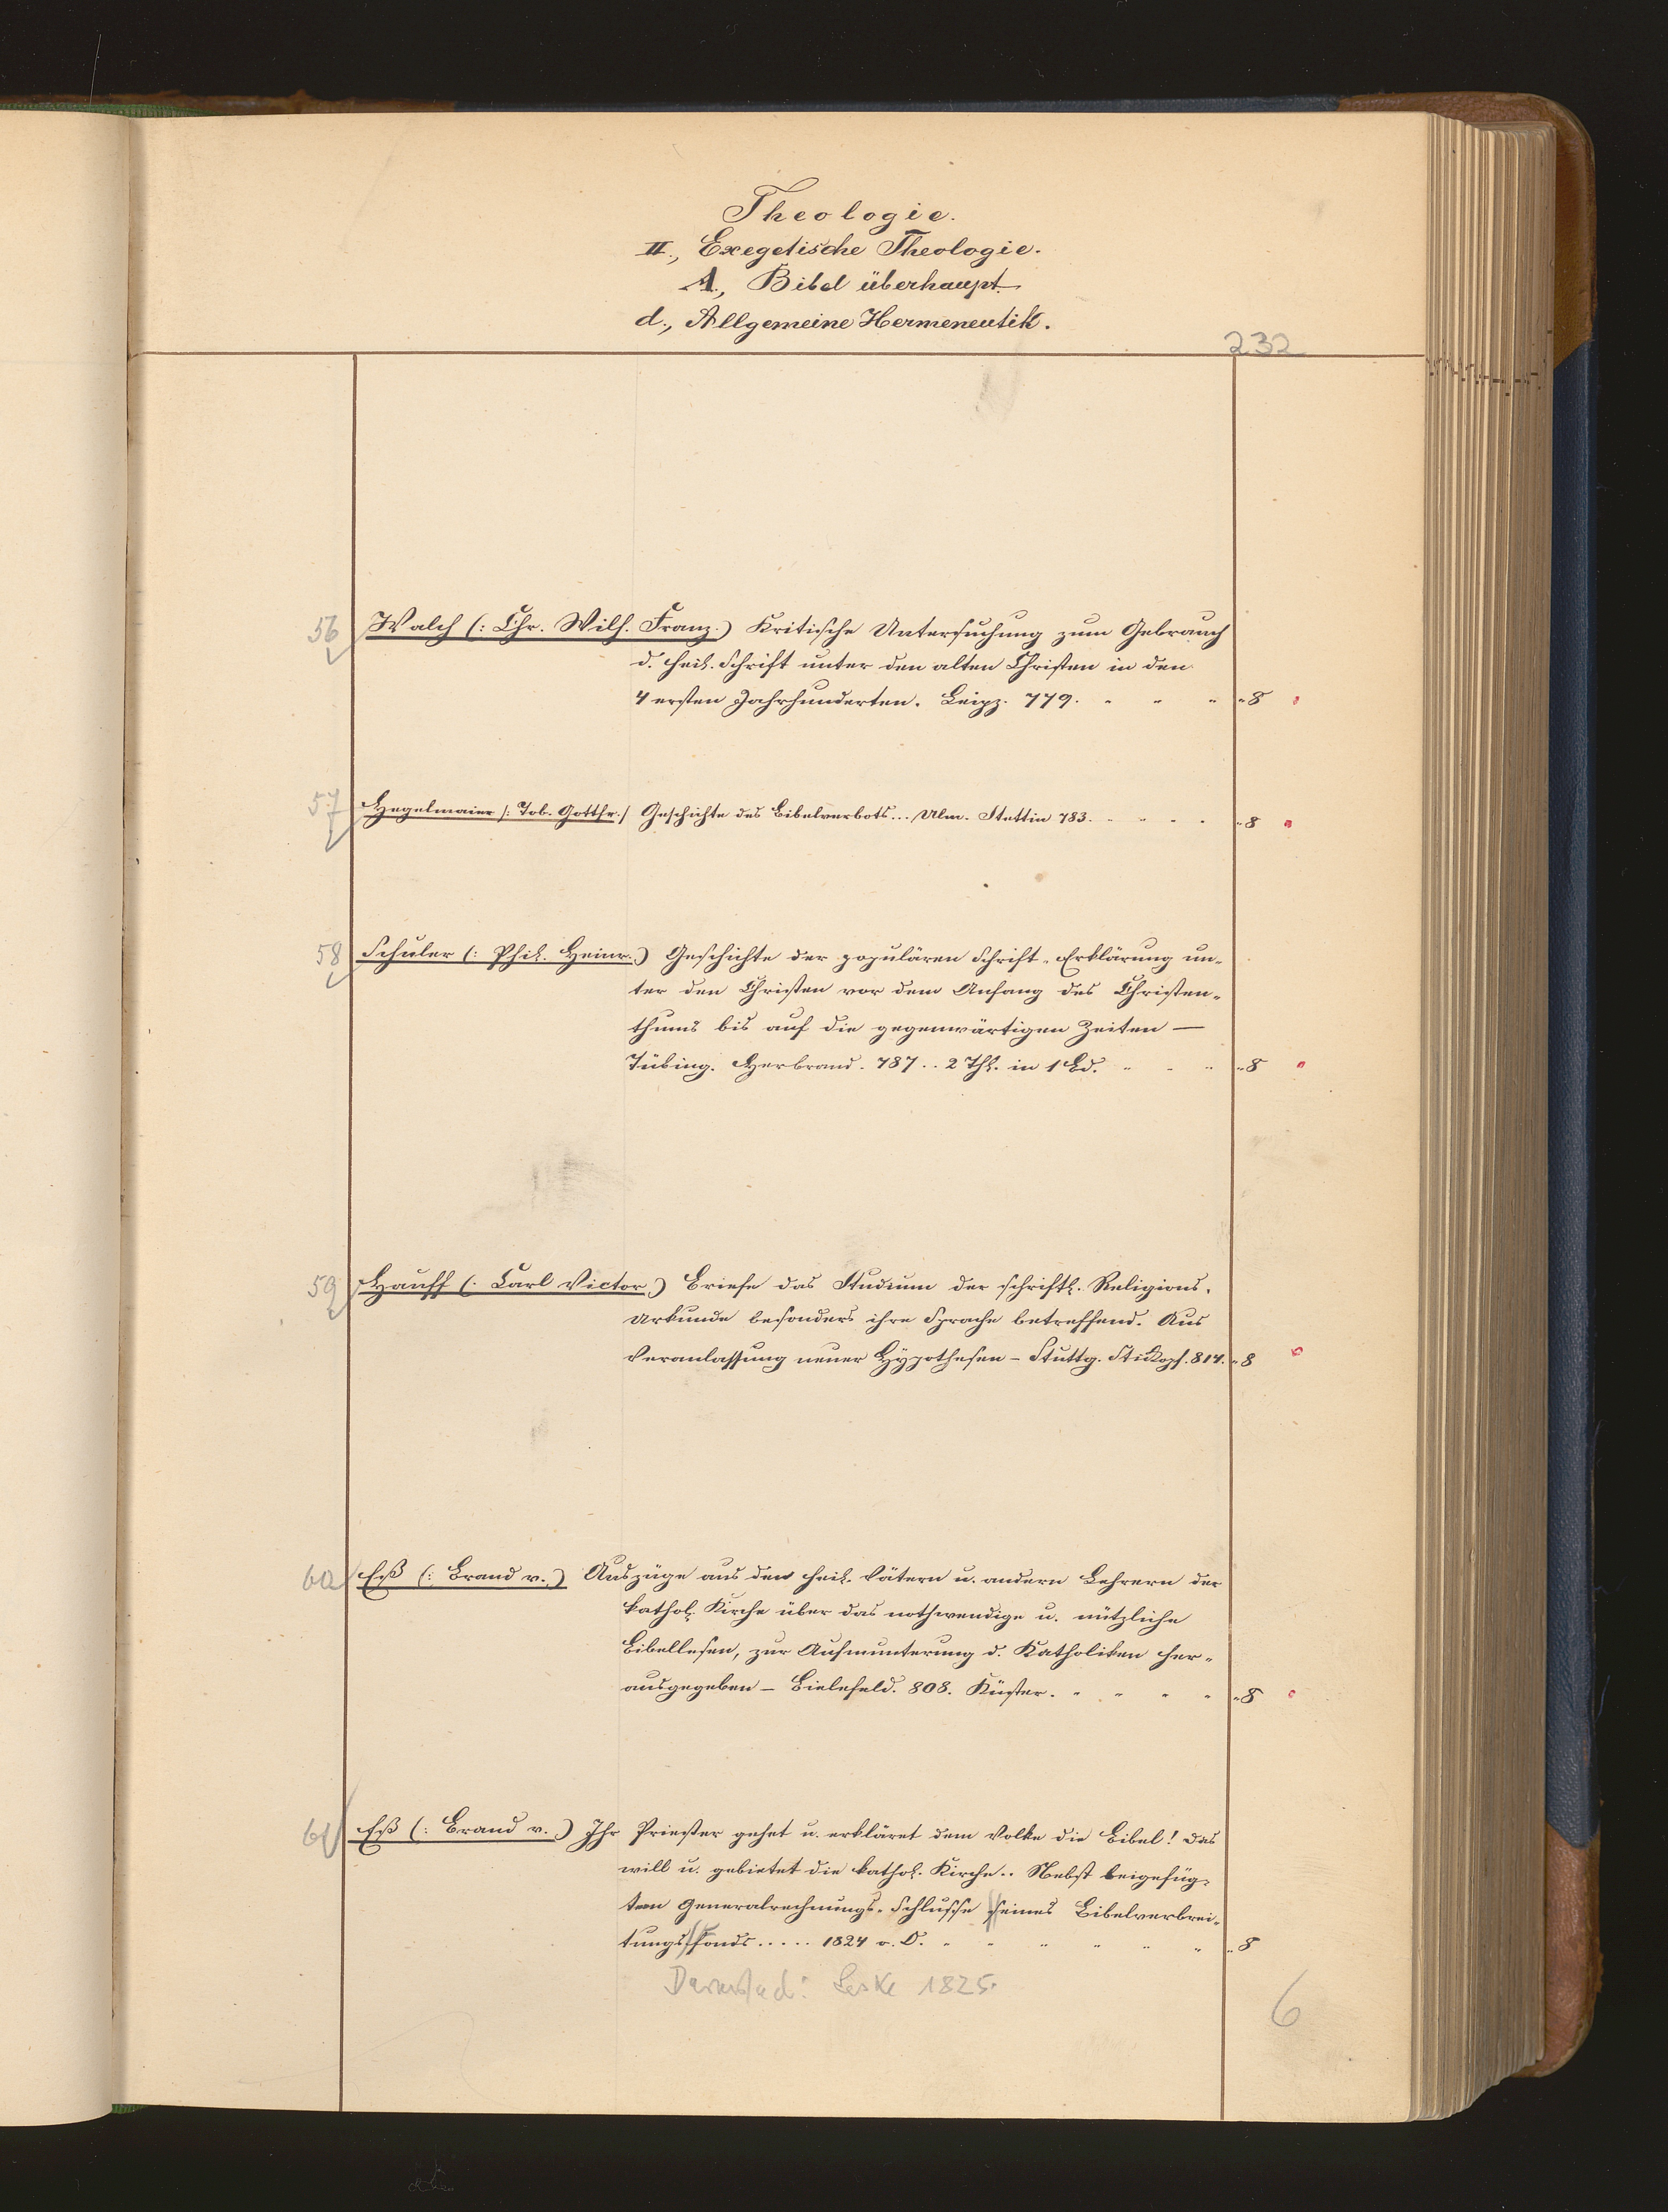 Theologie.
II., Exegetische Theologie.
A., Bibel überhaupt.
d., Allgemeine Hermeneutik.
232
56 Walch (: Chr. Wilh. Franz.) Kritische Untersuchung zum Gebrauch
d. heil. Schrift unter den alten Christen in den
4 ersten Jahrhunderten. Leipz. 779. " " " " 8
57 Hegelmaier /: Tob. Gottfr./ Geschichte des Bibelverbots... Ulm. Stettin 783. " " " " " 8
58 Schuler (: Phil. Heinr.) Geschichte der populären Schrift-Erklärung un-
ter den Christen vor dem Anfang des Christen-
thums bis auf die gegenwärtigen Zeiten —
Tübing. Herbrand. 787.. 2 Thl. in 1 Bd. " " " " 8
59 Hauff (: Carl Victor.) Briefe das Studium der schriftl. Religions-
Urkunde besonders ihre Sprache betreffend. Aus
Veranlassung neuer Hypothesen – Stuttg. Steikopf. 814. " 8
60 Eß (: Brand v.) Auszüge aus den heil. Vätern u. andern Lehrern der
kathol. Kirche über das nothwendige u. nützliche
Bibellesen, zur Aufmunterung d. Katholiken her-
ausgegeben – Bielefeld. 808. Küster. " " " " " 8
61 Eß (: Brand v.) Ihr Priester gehet u. erkläret dem Volke die Bibel! Das
will u. gebietet die kathol. Kirche.. Nebst beigefüg-
tem Generalrechnungs-Schlusse seines Bibelverbrei-
tungsfonds..... 1824 o. O. " " " " " " " 8
Darmstadt: Leske 1825.
6